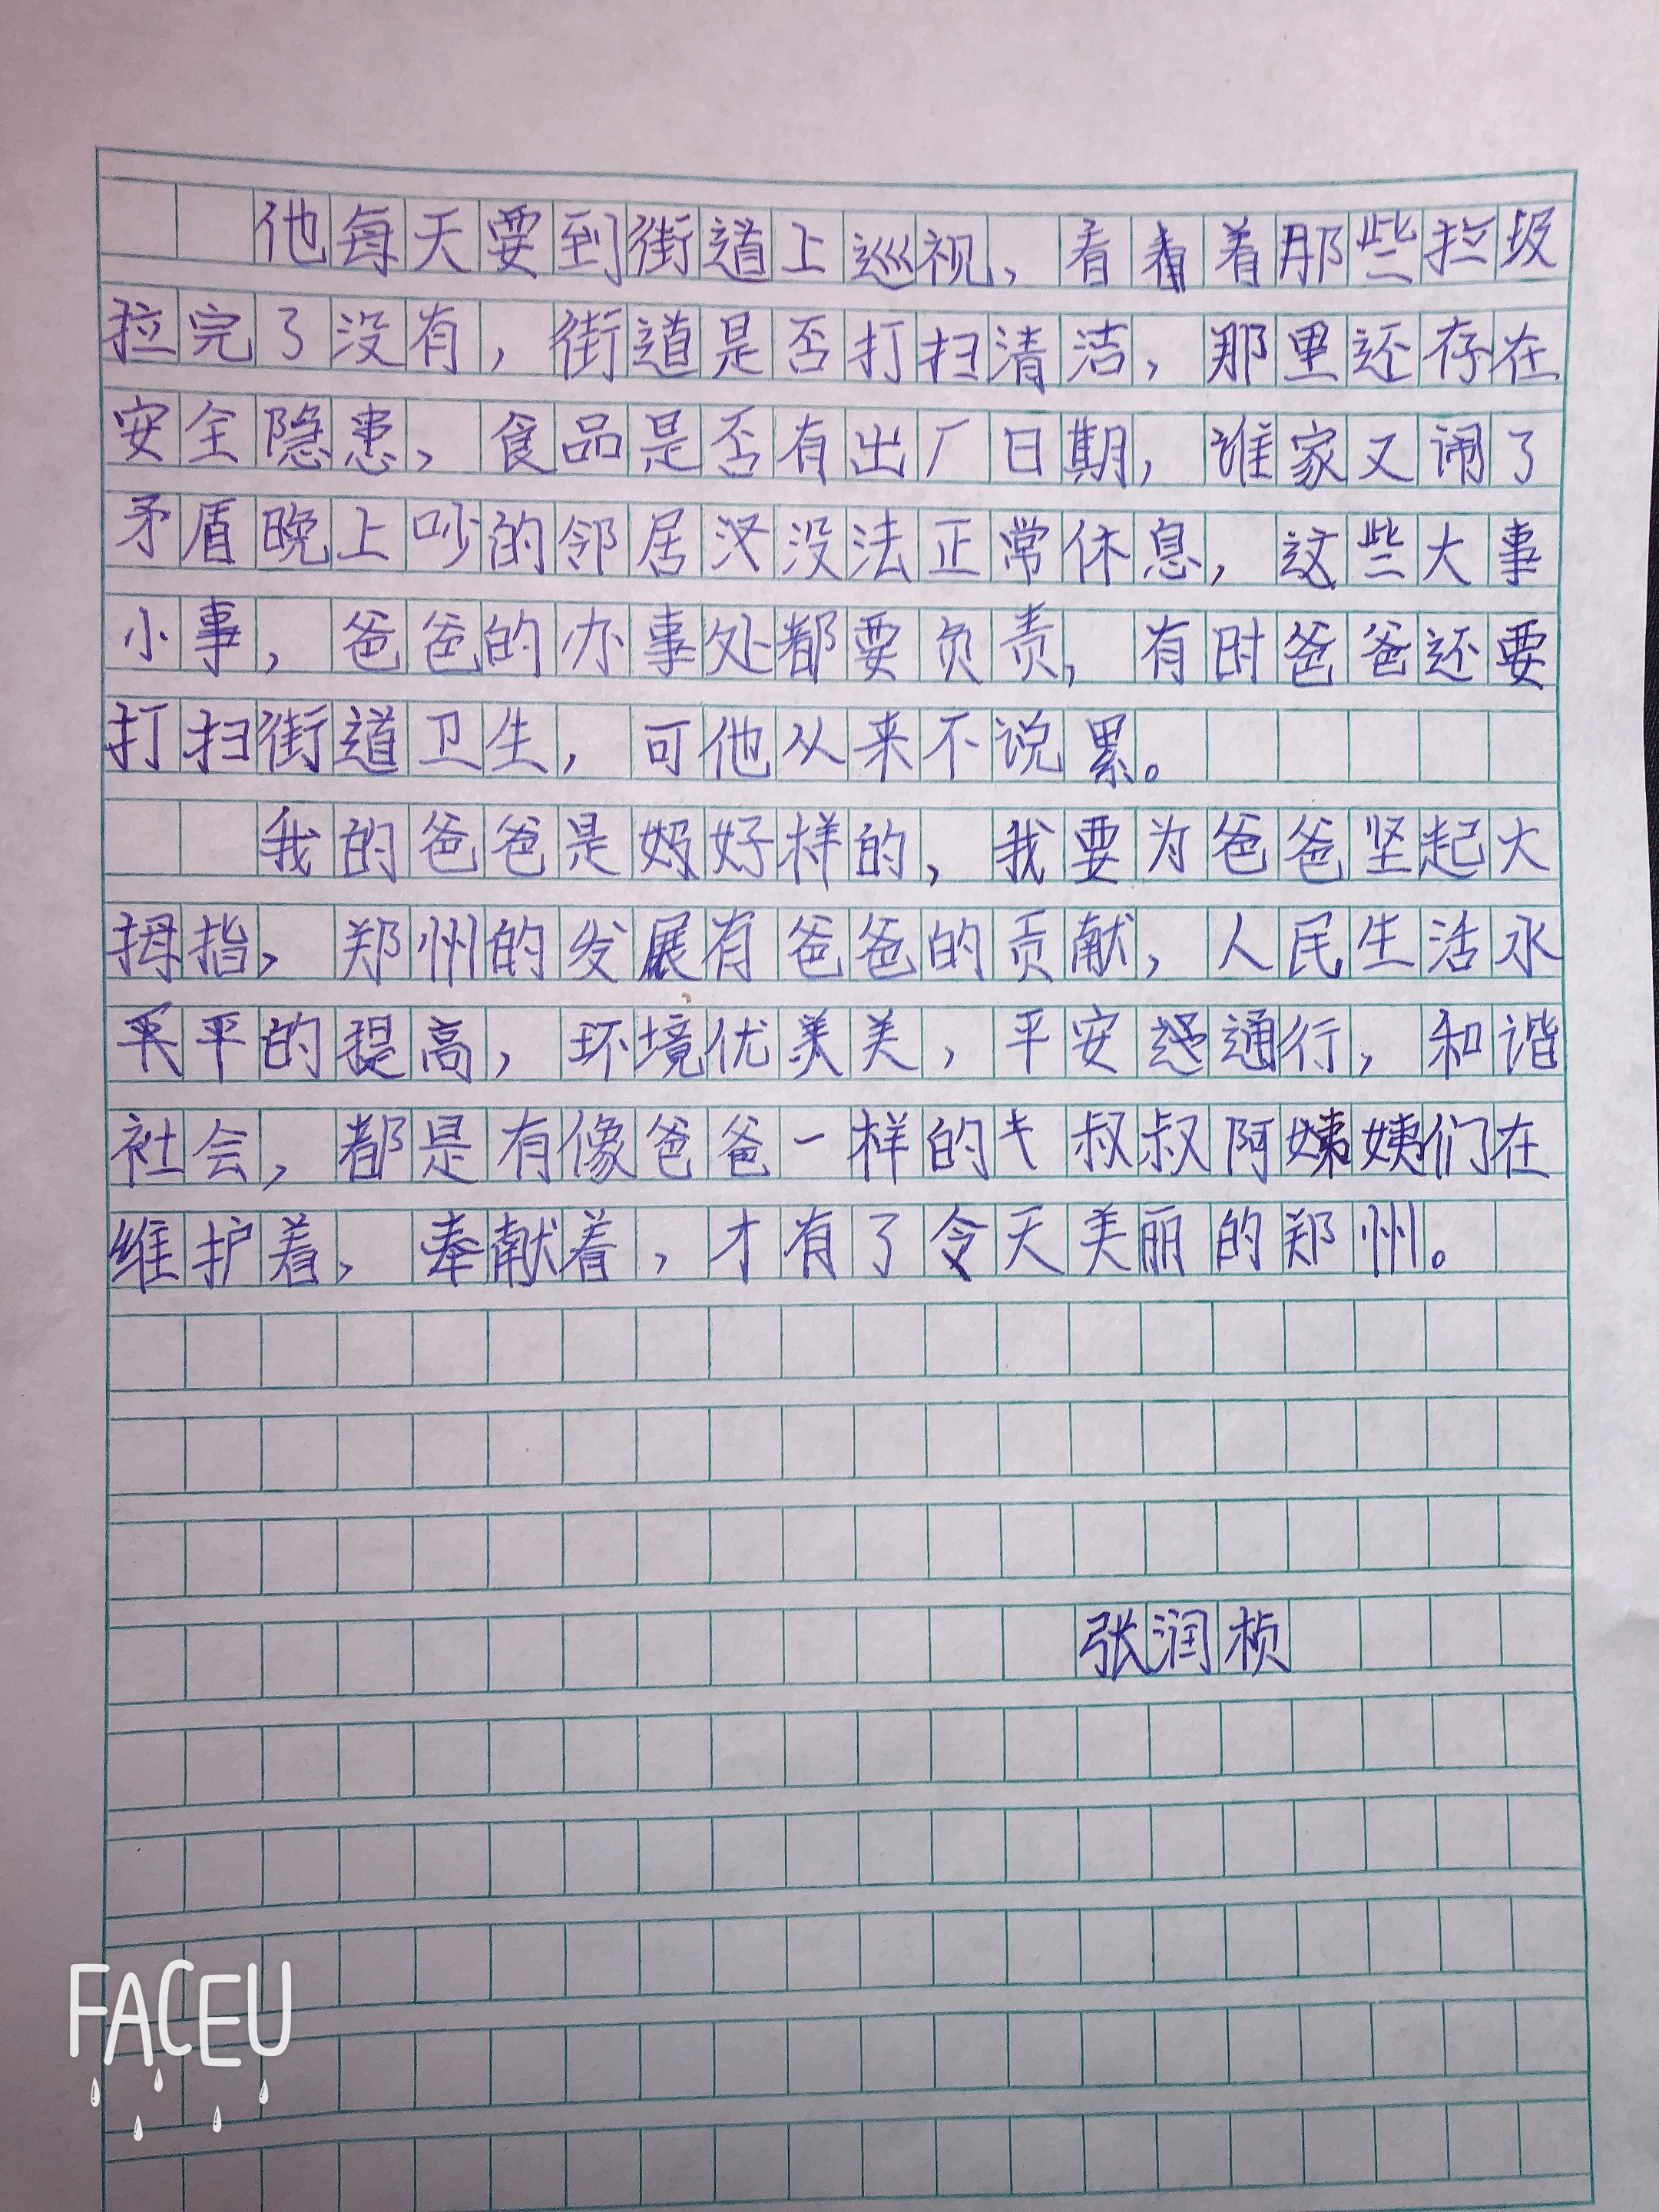 他每天要到街道上巡视，看着那些拉圾
拉完了没有，街道是否打扫清洁，那里还存在
安全隐患，食品是否有出厂日期，谁家又闹了
矛盾晚上吵的邻居没法正常休息，这些大事
小事，爸爸的办事处都要负责，有时爸爸还要
打扫街道卫生，可他从来不说累。
我的爸爸是好样的，我要为爸爸坚起大
拇指，郑州的发展有爸爸的贡献，人民生活水
平的提高，环境优美，平安通行，和谐
社会，都是有像爸爸一样的叔叔阿姨们在
维护着，奉献着，才有了今天美丽的郑州。
张润桢
FACEU